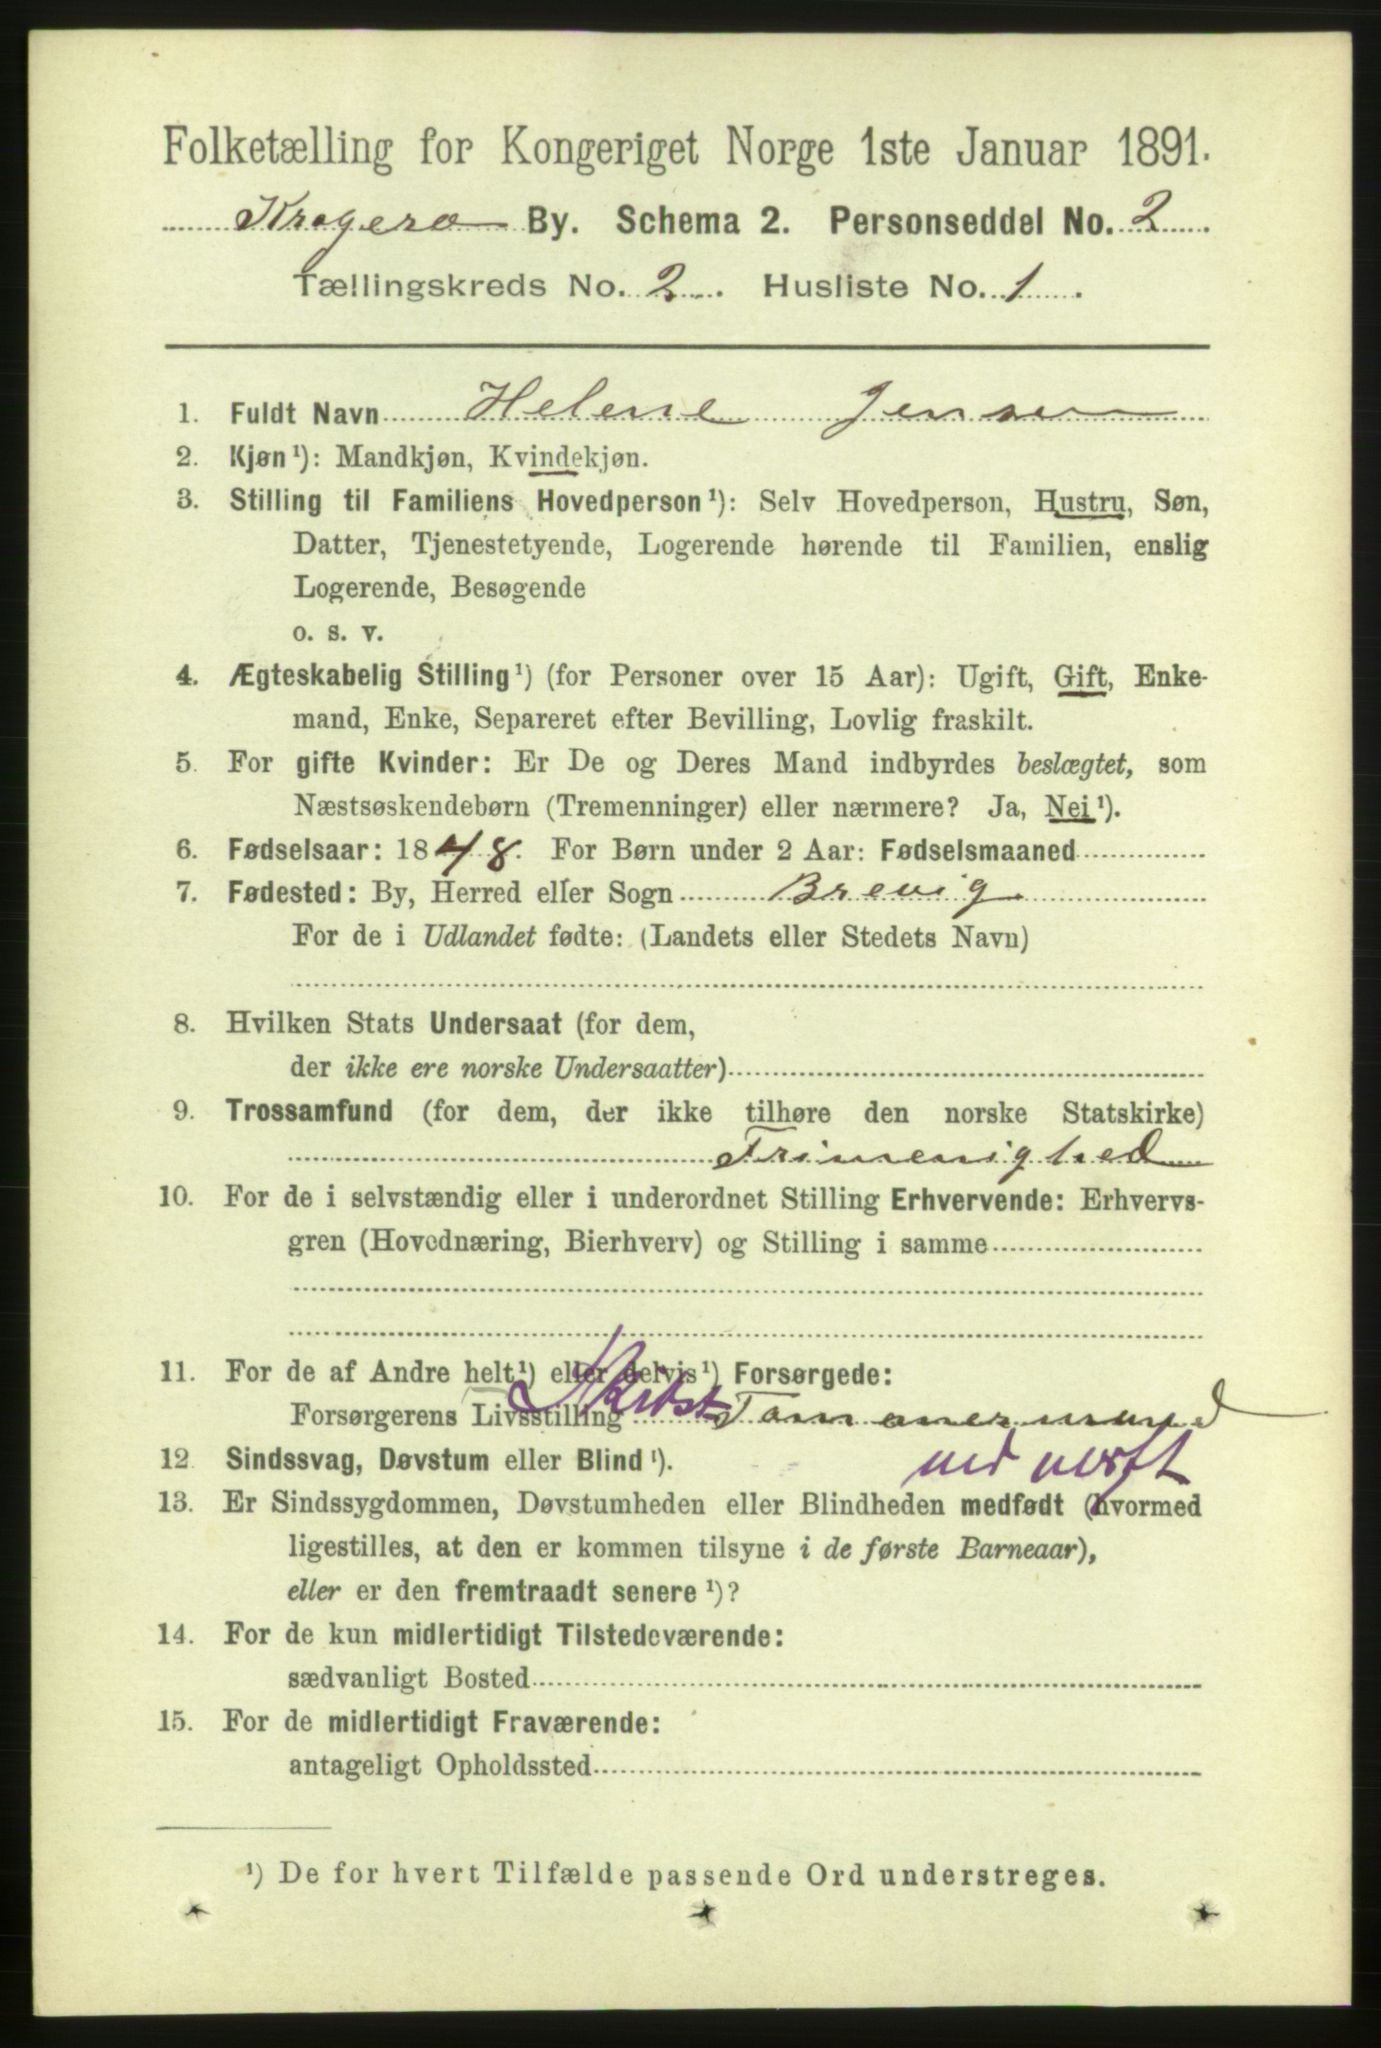 Folketælling for Kongeriget Norge 1ste Januar 1891.
Kragerø By. Schema 2. Personseddel No. 2
Tællingskreds No. 2. Husliste No. 1.
1. Fuldt Navn Helene Jensen
2. Kjøn¹): Mandkjøn, Kvindekjøn.
3. Stilling til Familiens Hovedperson¹): Selv Hovedperson, Hustru, Søn,
Datter, Tjenestetyende, Logerende hørende til Familien, enslig
Logerende, Besøgende
o. s. v.
4. Ægteskabelig Stilling¹) (for Personer over 15 Aar): Ugift, Gift, Enke-
mand, Enke, Separeret efter Bevilling, Lovlig fraskilt.
5. For gifte Kvinder: Er De og Deres Mand indbyrdes beslægtet, som
Næstsøskendebørn (Tremenninger) eller nærmere? Ja, Nei¹).
6. Fødselsaar: 1848. For Børn under 2 Aar: Fødselsmaaned
7. Fødested: By, Herred eller Sogn Brevig
For de i Udlandet fødte: (Landets eller Stedets Navn)
8. Hvilken Stats Undersaat (for dem,
der ikke ere norske Undersaatter)
9. Trossamfund (for dem, der ikke tilhøre den norske Statskirke)
Frimenighed
10. For de i selvstændig eller i underordnet Stilling Erhvervende: Erhvervs-
gren (Hovednæring, Bierhverv) og Stilling i samme
11. For de af Andre helt¹) eller delvis¹) Forsørgede:
Forsørgerens Livsstilling Skibst Tømmermand
ved værft
12. Sindssvag, Døvstum eller Blind¹).
13. Er Sindssygdommen, Døvstumheden eller Blindheden medfødt (hvormed
ligestilles, at den er kommen tilsyne i de første Barneaar),
eller er den fremtraadt senere¹)?
14. For de kun midlertidigt Tilstedeværende:
sædvanligt Bosted
15. For de midlertidigt Fraværende:
antageligt Opholdssted
¹) De for hvert Tilfælde passende Ord understreges.